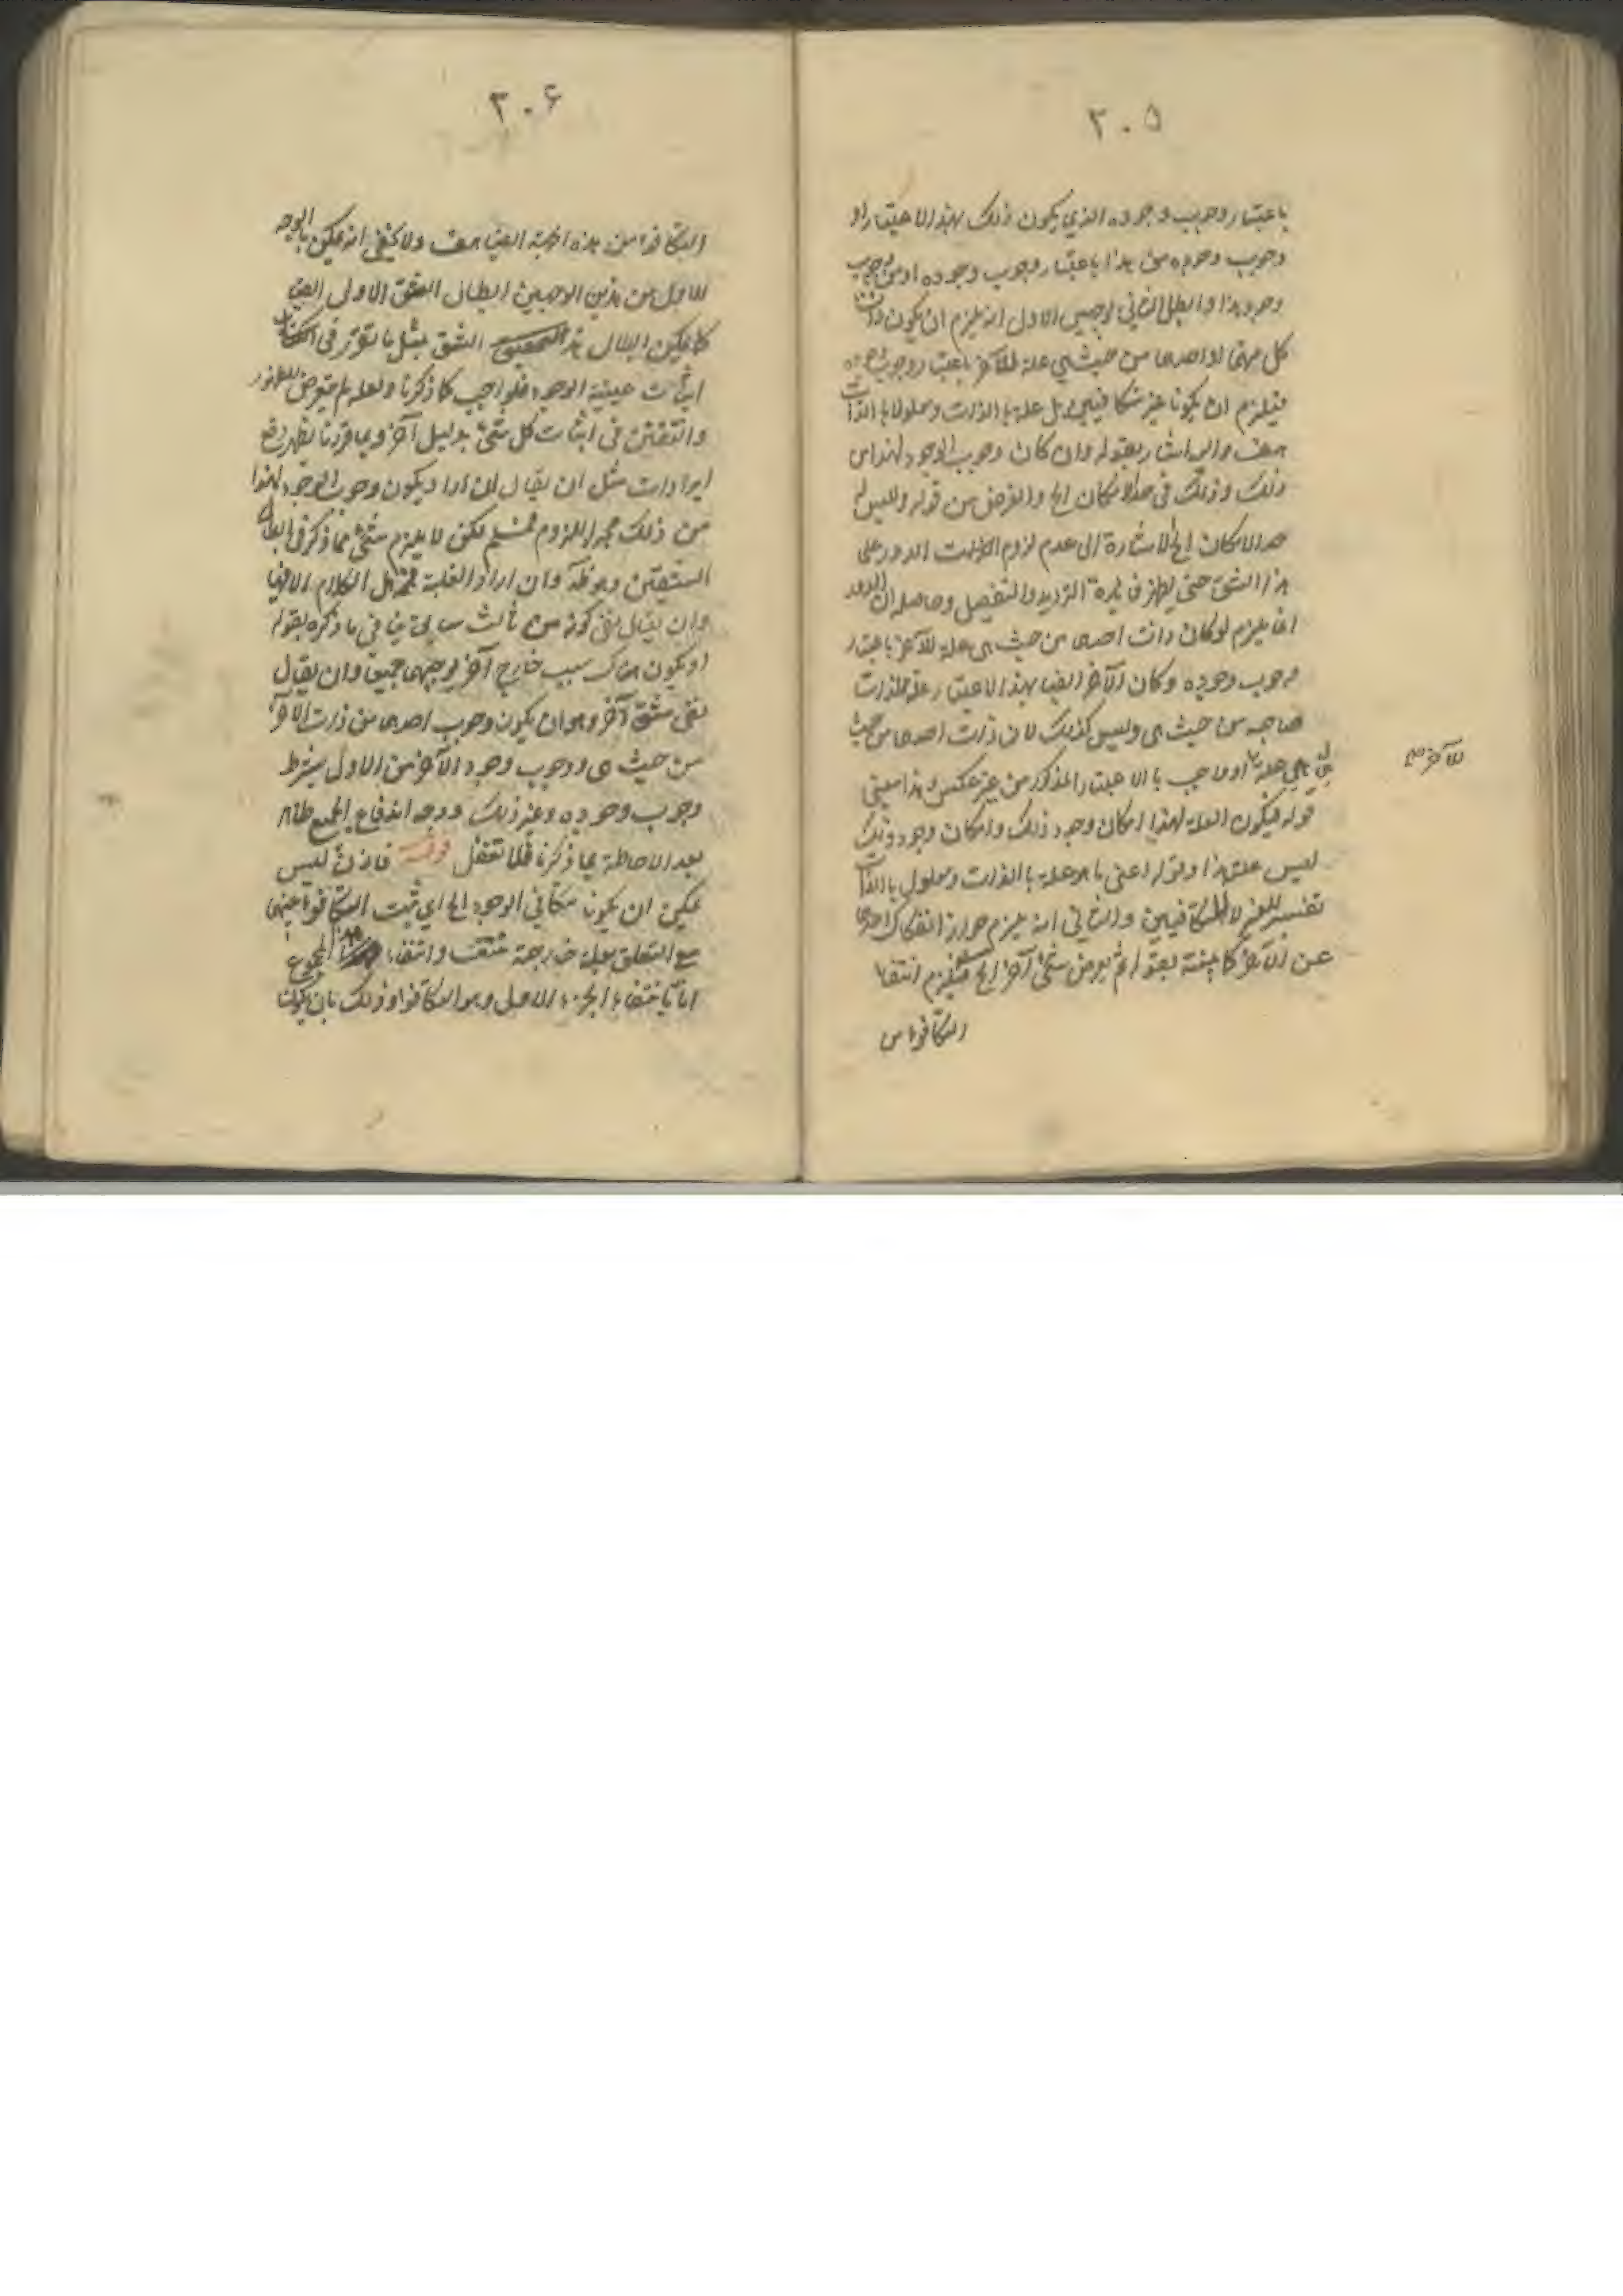 ٣٠٥
باعتبار وجوب وجوده الذي يكون ذلك بهذا الاعتبار او
وجوب وجوده من هذا باعتبار وجوب وجوده او من وجوب
وجود هذا وابطل الثاني بوجهين الاول انه يلزم ان يكون ذات
كل منهما او احدهما من حيث هي علة للآخر باعتبار وجوب وجوده
فيلزم ان يكونا غير متكافيين بل علة بالذات ومعلولا بالذات
هف واليه اشار بقوله وان كان وجوب الوجود لهذا من
ذلك وذلك في حد الامكان الخ والغرض من قوله وليس في
حد الامكان الخ الاشارة الى عدم لزوم الدور على
هذا الشق حتى يظهر فايدة الترديد والتفصيل وحاصله ان الدور
انما يلزم لو كان ذات احدهما من حيث هي علة للآخر باعتبار
وجوب وجوده وكان الآخر ايضا بهذا الاعتبار علة لذات
صاحبه من حيث هي وليس كذلك لان ذات احدهما من حيث
هي هي علة او ماجب بالاعتبار المذكور من غير عكس وهذا معنى
للآخر
قوله فيكون العلة لهذا امكان وجود ذلك وامكان وجود ذلك
ليس علته هذا وقوله اعني ما هو علة بالذات ومعلول بالذات
تفسير للغير المتكافيين والثاني انه يلزم جواز انفكاك احدهما
عن الآخر كما بينته بقوله ثم يعرض شئ آخر الخ فيلزم انتفاء
التكافؤ من
٣٠۶
التكافؤ من هذه الجهة ايضا هف ولا يخفى انه يمكن بالوجه
الاول من هذين الوجهين ابطال الشق الاول ايضا
كما يمكن ابطال هذا الشق بمثل ما تقرر في
اثبات عينية الوجود للواجب كما ذكرنا ولعله لم يتعرض للظهور
والتفنن في اثبات كل شئ بدليل آخر وبما قررنا يظهر دفع
ايرادات مثل ان يقال ان اراد بكون وجوب الوجود لهذا
من ذلك مجرد اللزوم فمسلم لكن لا يلزم شئ مما ذكر في ابطال
الشقين وهو ظ وان اراد العلية
وان يقال بقى كونه من ثالث
او يكون هناك سبب خارج آخر يوجبهما جميعا وان يقال
بقى شق آخر وهو ان يكون وجوب احدهما من ذات الآخر
من حيث هي ووجوب وجود الآخر من الاول بشرط
وجوب وجوده وغير ذلك ووجه اندفاع الجميع ظاهر
بعد الاحاطة بما ذكرنا فلا تغفل قوله فاذن ليس
يمكن ان يكونا متكافئي الوجود الخ اي ثبت التكافؤ بينهما
مع التعلق بعلة خارجة منتف وانتفاء هذا المجموع
اما بانتفاء الجزء الاول وهو التكافؤ وذلك بان يكونا